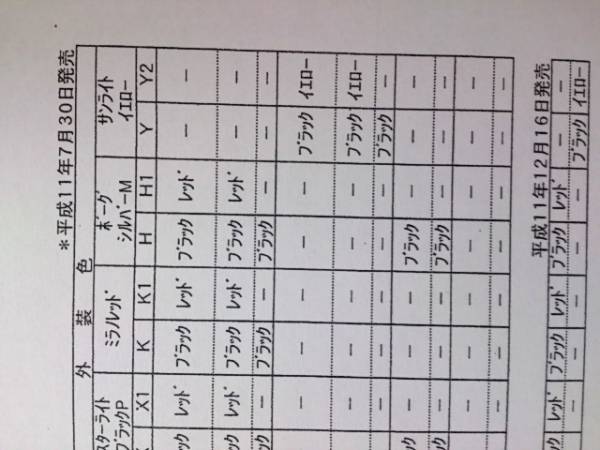 *平成11年7月30日発売
外装色
スターライト ミラノレッド ボーグ サンライト
ブラックP シルバーM イエロー
X1 K K1 H H1 Y Y2
ック レッド ブラック レッド ブラック レッド － －
ック レッド ブラック レッド ブラック レッド － －
ック － ブラック － ブラック － － －
－ － － － － － ブラック イエロー
－ － － － － － ブラック イエロー
－ － － － － － ブラック －
ック － － － ブラック － － －
ック － － － ブラック － － －
－ － － － － － － －
－ － － － － － － －
平成11年12月16日発売
レッド ブラック レッド ブラック レッド － －
－ － － － － ブラック イエロー